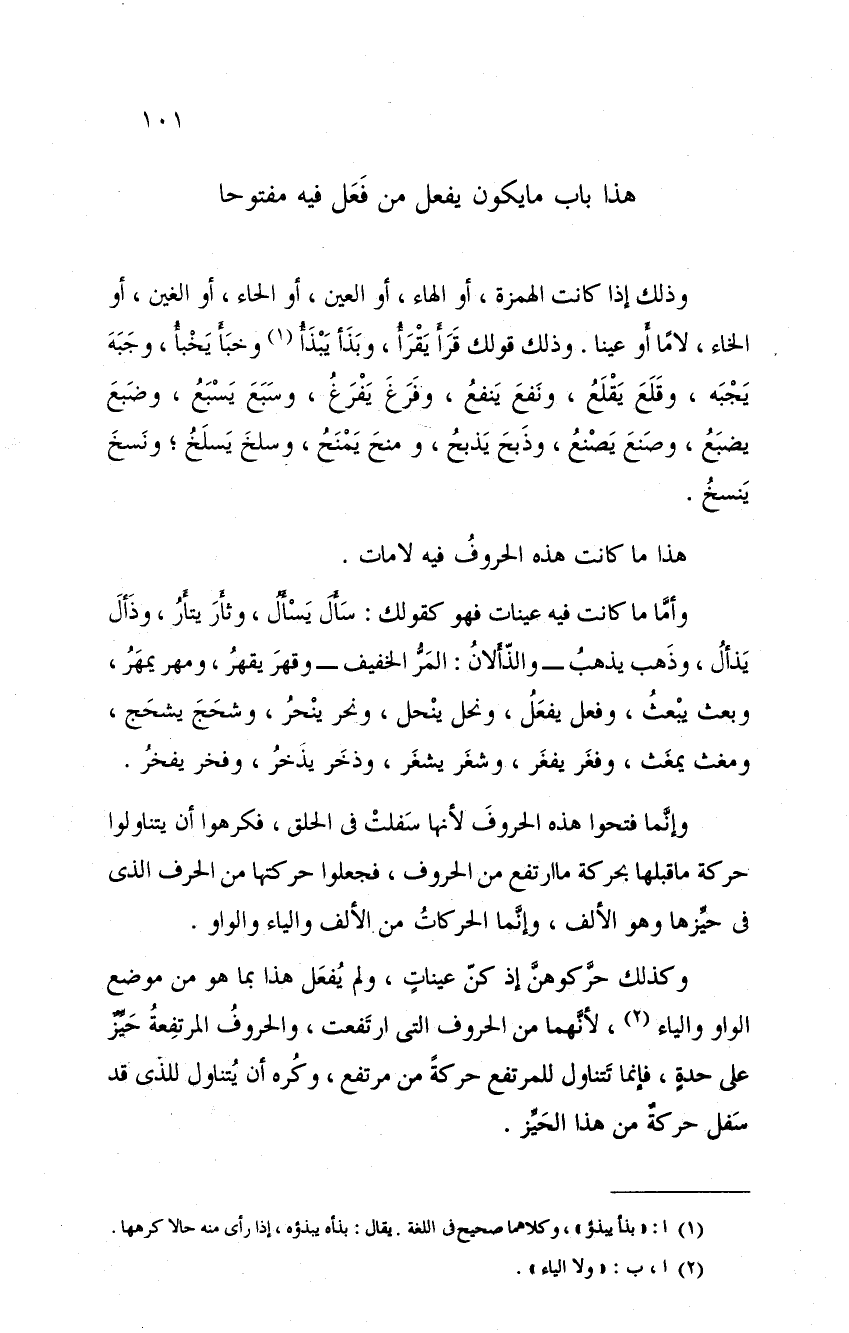 ١٠١
هذا باب مايكون يفعل من فَعَل فيه مفتوحا
وذلك إذا كانت الهمزة ، أو الهاء ، أو العين ، أو الحاء ، أو الغين ، أو
الخاء ، لامًا أو عينا . وذلك قولك قَرَأَ يَقْرَأُ ، وبَذَأ يَبْذَأُ (١) وخبَأَ يَخْبأُ ، وجَبَهَ
يَجْبَه ، وقَلَعَ يَقْلَعُ ، ونَفعَ يَنفعُ ، وفَرَغَ يَفْرَغُ ، وسَبَعَ يَسْبَعُ ، وضَبَعَ
يضبَعُ ، وصَنَعَ يَصْنَعُ ، وذَبحَ يَذبحُ ، و منحَ يَمْنَحُ ، وسلخَ يَسلَخُ ؛ ونَسخَ
يَنسخُ .
هذا ما كانت هذه الحروفُ فيه لامات .
وأمَّا ما كانت فيه عينات فهو كقولك : سَأَلَ يَسْأَلُ ، وثأَرَ يثأَرُ ، وذَأَلَ
يَذألُ ، وذَهب يذهبُ ــ والذّأَلانُ : المَرُّ الخفيف ــ وقهرَ يقهرُ ، ومهر يمهَرُ ،
وبعث يبْعثُ ، وفعل يفعَلُ ، ونحل ينْحل ، ونحر ينْحرُ ، وشحَجَ يشحَج ،
ومغث يمغَث ، وفغَر يفغَر ، وشغَر يشغَر ، وذخَر يذْخرُ ، وفخر يفخرُ .
وإنَّما فتحوا هذه الحروفَ لأنها سَفلتْ فى الحلق ، فكرهوا أن يتناولوا
حركة ماقبلها بحركة ماارتفع من الحروف ، فجعلوا حركتها من الحرف الذى
فى حيِّزها وهو الألف ، وإنَّما الحركاتُ من الألف والياء والواو .
وكذلك حرَّكوهنَّ إذ كنّ عيناتٍ ، ولم يُفعَل هذا بما هو من موضع
الواو والياء (٢) ، لأنَّهما من الحروف التى ارتَفعت ، والحروفُ المرتفِعةُ حَيِّزٌ
على حدةٍ ، فإنما تَتناول للمرتفع حركةً من مرتفع ، وكُره أن يُتناول للذى قد
سَفل حركةٌ من هذا الحَيِّز .
(١) ا : « بذأ يبذؤ » ، وكلاهما صحيح فى اللغة . يقال : بذأه يبذؤه ، إذا رأى منه حالا كرهها .
(٢) ا ، ب : « ولا الياء » .